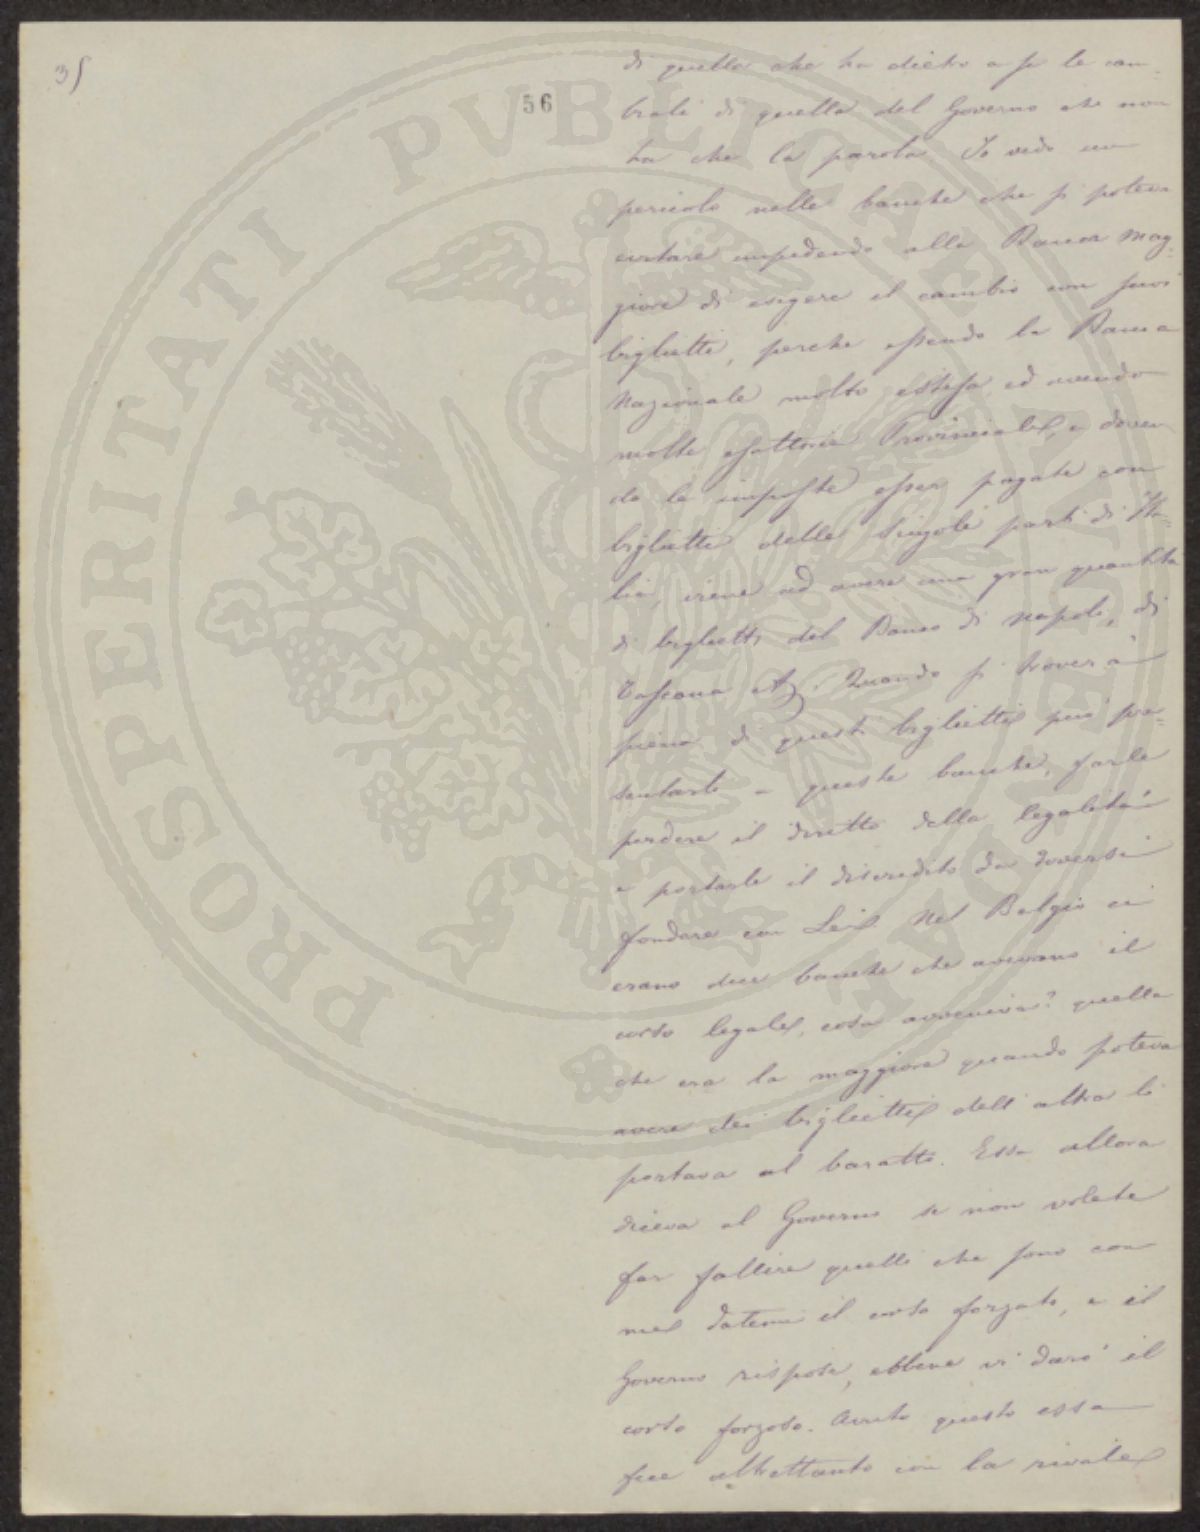 35
56
di quella che ha dietro a se le cam-
biali di quella del Governo che non
ha che la parola. Io vedo un
pericolo nelle banche che si poteva
evitare impedendo alla Banca Mag-
giore di esigere il cambio con suoi
biglietti, perche essendo la Banca
Nazionale molto estesa, ed avendo
molte esattorie Provinciali, e doven
do le imposte esser pagate con
biglietti delle singole parti di Ita-
lia, viene ad avere una gran quantità
di biglietti del Banco di Napoli, di
Toscana etc. Quando si troverà
piena di questi biglietti può pre-
sentarli a queste banche, farle
perdere il diritto della legalità
e portarle il discredito da doversi
fondare con Lei. Nel Belgio ci
erano due banche che avevano il
corso legale, cosa avveniva? quella
che era la maggiore quando poteva
avere dei biglietti dell'altra li
portava al baratto. Essa allora
diceva al Governo se non volete
far fallire quelli che sono con
me datemi il corso forzato, e il
Governo rispose, ebbene vi darò il
corso forzoso. Avuto questo essa
fece altrettanto con la rivale
PROSPERITATI PVBLICAE